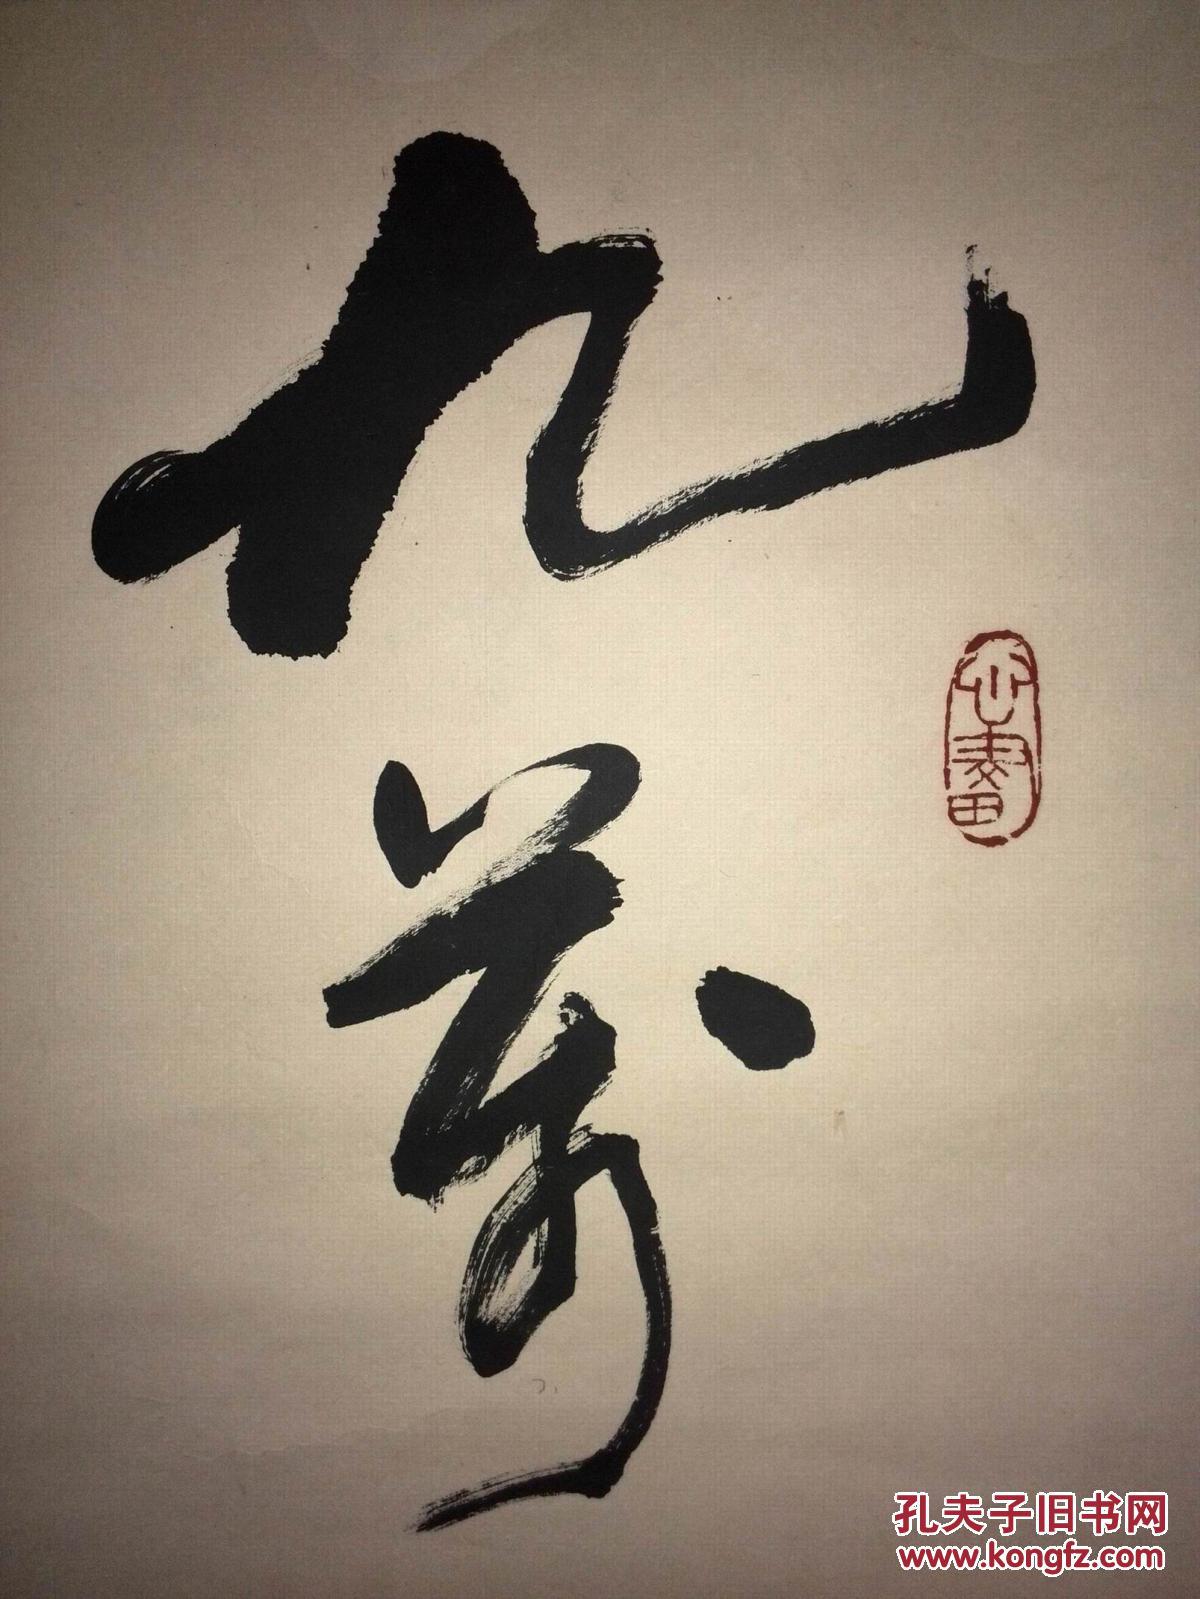 九
萬
心畫
孔夫子旧书网
www.kongfz.com